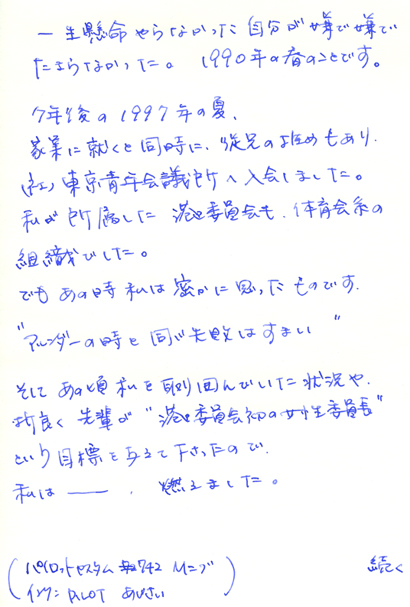 一生懸命やらなかった自分が嫌で嫌で
たまらなかった。 1990年の春のことです。
7年後の1997年の夏、
家業に就くと同時に、従兄の勧めもあり、
(社)東京青年会議所へ入会しました。
私が所属した港区委員会も、体育会系の
組織でした。
でもあの時私は密かに思ったものです。
"アレンダーの時と同じ失敗はすまい"
そしてあの頃私を取り囲んでいた状況や、
折良く先輩が"港区委員会初の女性委員長"
という目標を与えて下さったので、
私は――、燃えました。
(パイロットカスタム 742 Mニブ
インク:PILOT あじさい)
続く